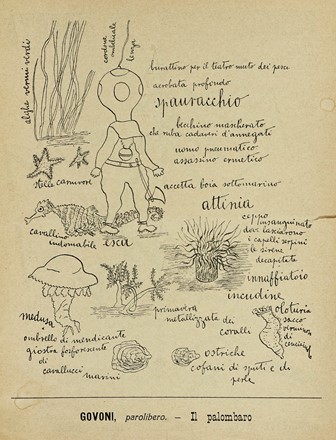 alghe vermi verdi
cordone
ombelicale
lenza
burattino per il teatro muto dei pesci
acrobata profondo
spauracchio
becchino mascherato
che ruba cadaveri d'annegati
uomo pneumatico
assassino ermetico
stelle carnivore
accetta boia sottomarino
attinia
ceppo
insanguinato
dove lasciarono
i capelli serpini
le sirene
decapitate
cavallino
indomabile
esca
innaffiatoio
incudine
medusa
ombrello di mendicante
giostra fosforescente
di
cavallucci
marini
primavera
metallizzata dei
coralli
oloturia
sacco
di
ostriche
cofani di sputi e di
perle
GOVONI, parolibero. – Il palombaro